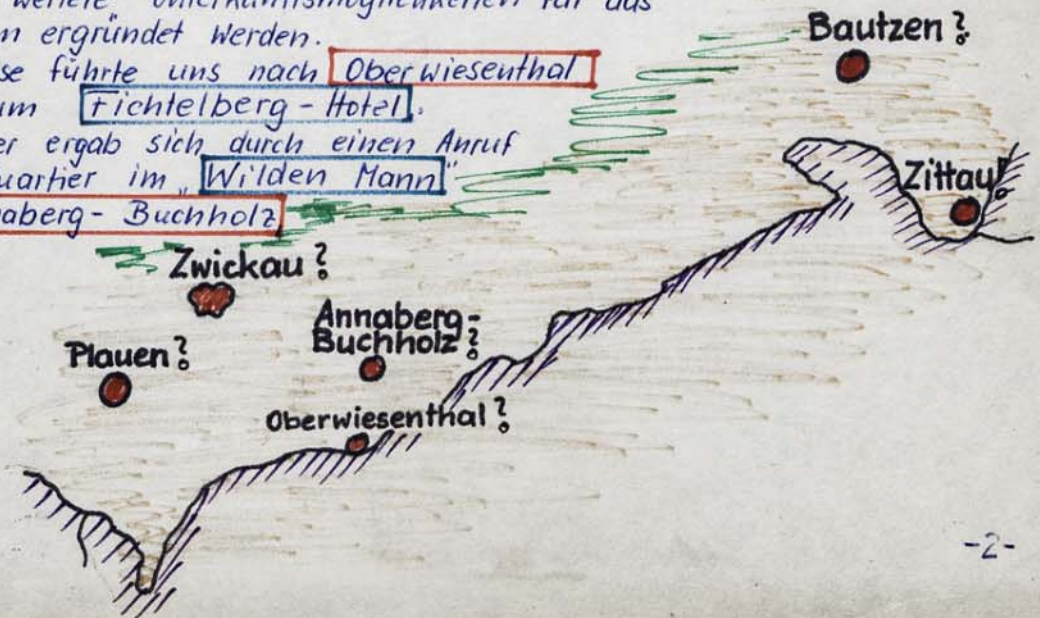 weitere Unterkunftsmöglichkeiten für das
ergründet werden.
führte uns nach Oberwiesenthal
Fichtelberg-Hotel.
ergab sich durch einen Anruf
im "Wilden Mann"
Buchholz
Bautzen?
Zittau!
Zwickau?
Annaberg-
Buchholz?
Plauen?
Oberwiesenthal?
-2-